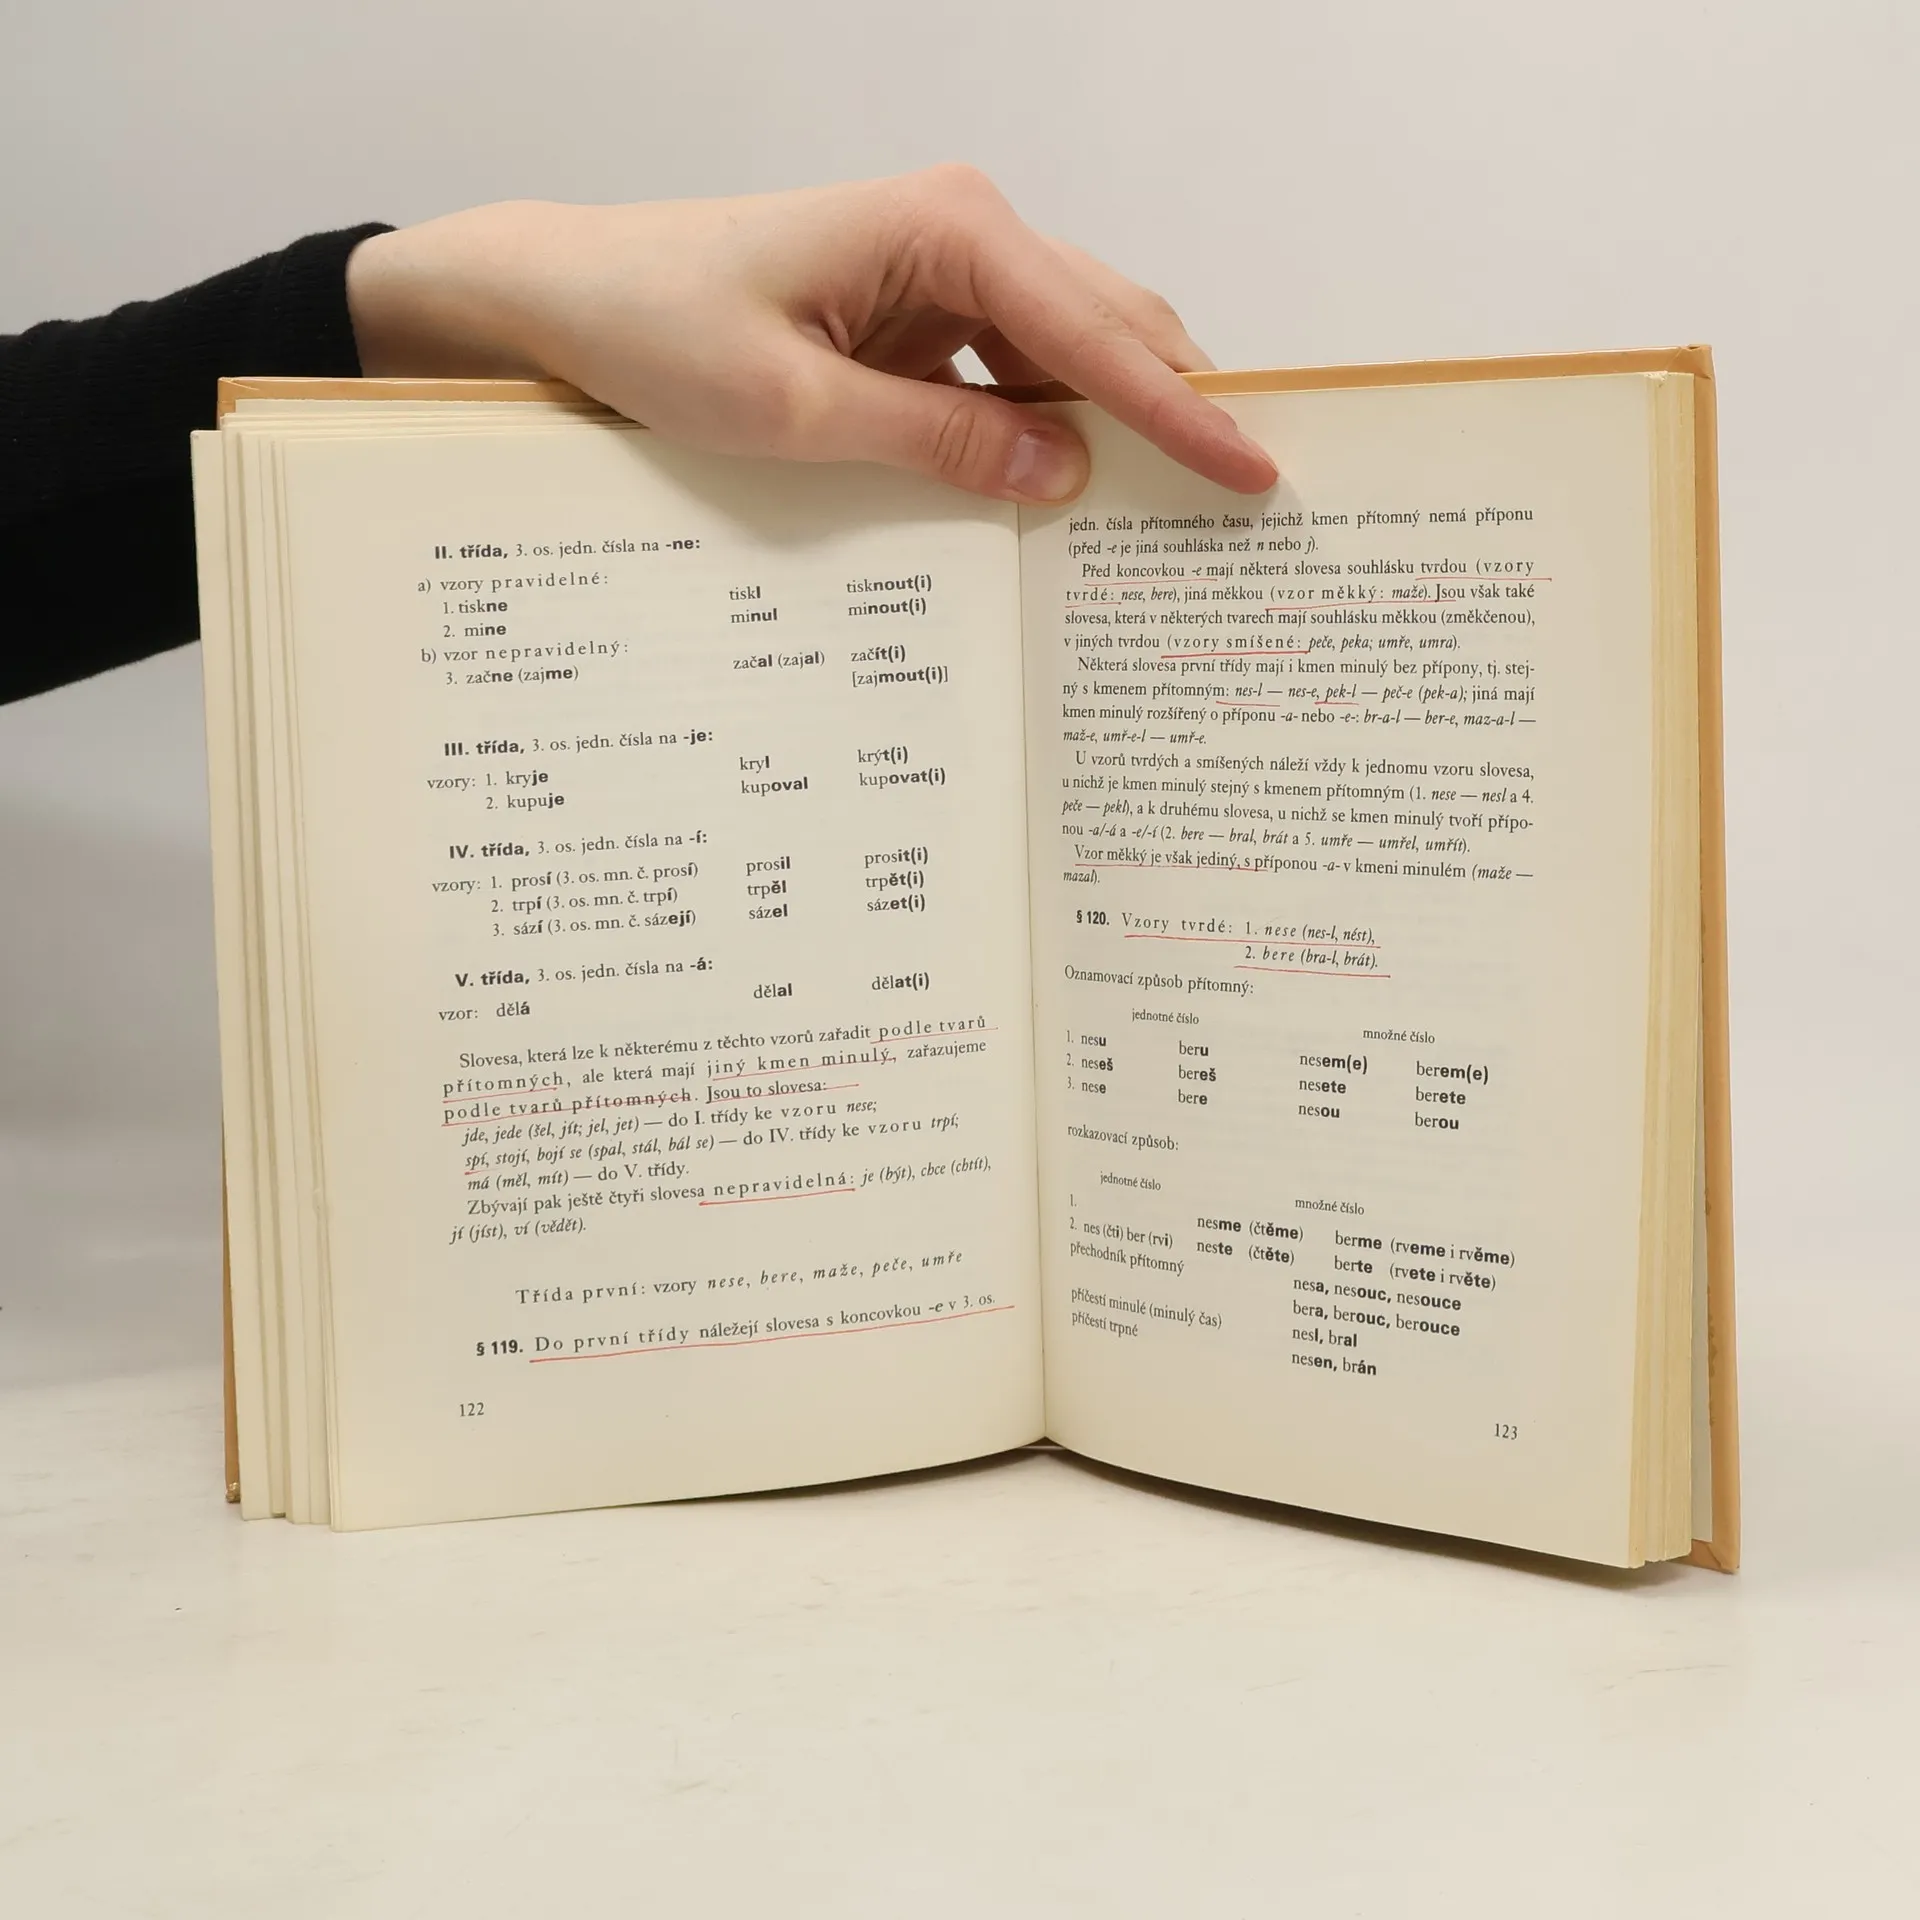 II. třída, 3. os. jedn. čísla na -ne:
a) vzory pravidelné:
1. tiskne tiskl tisknout(i)
2. mine minul minout(i)
b) vzor nepravidelný:
3. začne (zajme) začal (zajal) začít(i)
[zajmout(i)]
III. třída, 3. os. jedn. čísla na -je:
vzory: 1. kryje kryl krýt(i)
2. kupuje kupoval kupovat(i)
IV. třída, 3. os. jedn. čísla na -í:
vzory: 1. prosí (3. os. mn. č. prosí) prosil prosit(i)
2. trpí (3. os. mn. č. trpí) trpěl trpět(i)
3. sází (3. os. mn. č. sázejí) sázel sázet(i)
V. třída, 3. os. jedn. čísla na -á:
vzor: dělá dělal dělat(i)
Slovesa, která lze k některému z těchto vzorů zařadit podle tvarů
přítomných, ale která mají jiný kmen minulý, zařazujeme
podle tvarů přítomných. Jsou to slovesa:
jde, jede (šel, jít; jel, jet) — do I. třídy ke vzoru nese;
spí, stojí, bojí se (spal, stál, bál se) — do IV. třídy ke vzoru trpí;
má (měl, mít) — do V. třídy.
Zbývají pak ještě čtyři slovesa nepravidelná: je (být), chce (chtít),
jí (jíst), ví (vědět).
Třída první: vzory nese, bere, maže, peče, umře
§ 119. Do první třídy náležejí slovesa s koncovkou -e v 3. os.
122
jedn. čísla přítomného času, jejichž kmen přítomný nemá příponu
(před -e je jiná souhláska než n nebo j).
Před koncovkou -e mají některá slovesa souhlásku tvrdou (vzory
tvrdé: nese, bere), jiná měkkou (vzor měkký: maže). Jsou však také
slovesa, která v některých tvarech mají souhlásku měkkou (změkčenou),
v jiných tvrdou (vzory smíšené: peče, peka; umře, umra).
Některá slovesa první třídy mají i kmen minulý bez přípony, tj. stej-
ný s kmenem přítomným: nes-l — nes-e, pek-l — peč-e (pek-a); jiná mají
kmen minulý rozšířený o příponu -a- nebo -e-: br-a-l — ber-e, maz-a-l —
maž-e, umř-e-l — umř-e.
U vzorů tvrdých a smíšených náleží vždy k jednomu vzoru slovesa,
u nichž je kmen minulý stejný s kmenem přítomným (1. nese — nesl a 4.
peče — pekl), a k druhému slovesa, u nichž se kmen minulý tvoří přípo-
nou -a/-á a -e/-í (2. bere — bral, brát a 5. umře — umřel, umřít).
Vzor měkký je však jediný, s příponou -a- v kmeni minulém (maže —
mazal).
§ 120. Vzory tvrdé: 1. nese (nes-l, nést),
2. bere (bra-l, brát).
Oznamovací způsob přítomný:
jednotné číslo množné číslo
1. nesu beru nesem(e) berem(e)
2. neseš bereš nesete berete
3. nese bere nesou berou
rozkazovací způsob:
jednotné číslo množné číslo
1. nesme (čtěme) berme (rveme i rvěme)
2. nes (čti) ber (rvi) neste (čtěte) berte (rvete i rvěte)
přechodník přítomný nesa, nesouc, nesouce
bera, berouc, berouce
příčestí minulé (minulý čas) nesl, bral
příčestí trpné nesen, brán
123